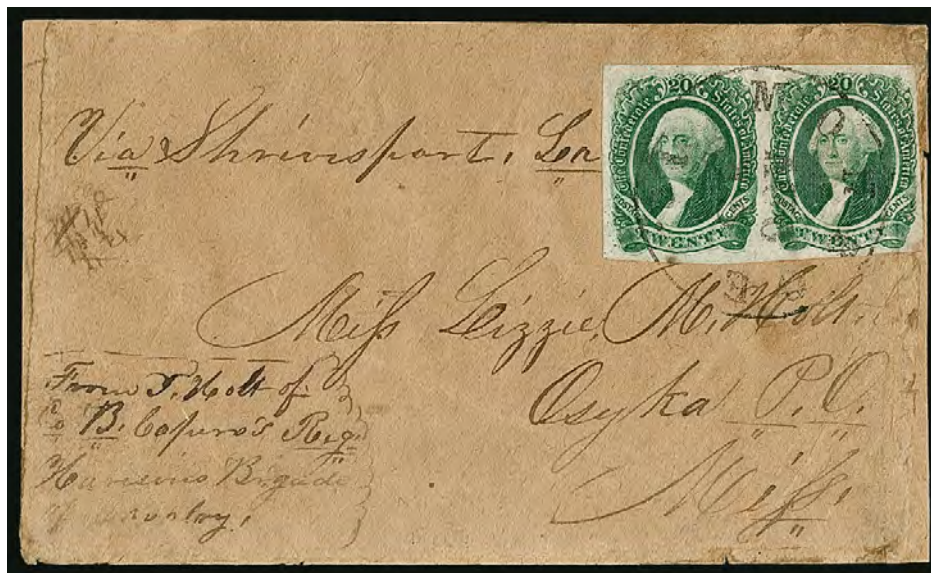 Via Shrivesport, La
20
The Confederate States of America
POSTAGE
CENTS
TWENTY
20
The Confederate States of America
POSTAGE
CENTS
TWENTY
Miss Lizzie M. Holt
Osyka P.O.
Miss.
From T. Holt of
Co B. Reg.
Brigade